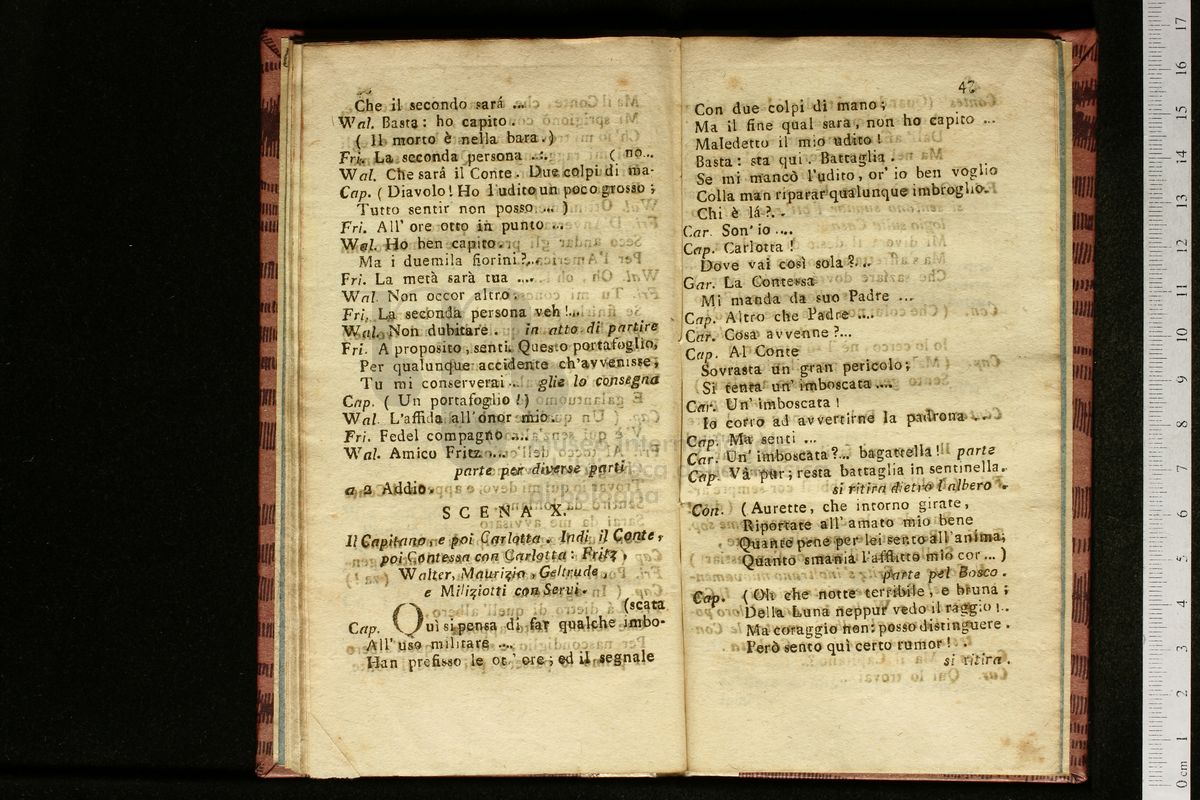 Che il secondo sará ....
Wal. Basta: ho capito.
( Il morto è nella bara.)
Fri. La seconda persona .... ( no...
Wal. Che sará il Conte. Due colpi di ma-
Cap. ( Diavolo! Ho l'udito un poco grosso ;
Tutto sentir non posso.... )
Fri. All' ore otto in punto ...
Wal. Ho ben capito.
Ma i duemila fiorini?...
Fri. La metà sarà tua ....
Wal. Non occor altro.
Fri. La seconda persona veh!...
Wal. Non dubitare. in atto di partire
Fri. A proposito, senti. Questo portafoglio,
Per qualunque accidente ch'avvenisse,
Tu mi conserverai ... glie lo consegna
Cap. ( Un portafoglio !)
Wal. L'affida all' onor mio.
Fri. Fedel compagno ....
Wal. Amico Fritz ....
parte per diverse parti
a 2 Addio.
SCENA X.
Il Capitano, e poi Carlotta. Indi il Conte,
poi Contessa con Carlotta: Fritz,
Walter, Maurizio, Geltrude,
e Miliziotti con Servi.
(scata
Cap. Quì si pensa di far qualche imbo-
All' uso militare ....
Han prefisso le ot' ore; ed il segnale
47
Con due colpi di mano;
Ma il fine qual sara, non ho capito ...
Maledetto il mio udito!
Basta: sta qui. Battaglia.
Se mi mancò l'udito, or' io ben voglio
Colla man riparar qualunque imbroglio.
Chi è lá?..
Car. Son' io ....
Cap. Carlotta!
Dove vai così sola?...
Gar. La Contessa
Mi manda da suo Padre ...
Cap. Altro che Padre ....
Car. Cosa avvenne?...
Cap. Al Conte
Sovrasta un gran pericolo;
Si tenta un' imboscata ....
Car. Un' imboscata!
Io corro ad avvertirne la padrona ...
Cap. Ma senti ...
Car. Un' imboscata?... bagattella! parte
Cap. Và pur; resta battaglia in sentinella.
si ritira dietro l'albero.
Con. ( Aurette, che intorno girate,
Riportate all' amato mio bene
Quante pene per lei sento all' anima;
Quanto smania l'afflitto mio cor ... )
parte pel Bosco.
Cap. ( Oh che notte terribile, e bruna ;
Della Luna neppur vedo il raggio!..
Ma coraggio non: posso distinguere.
Però sento quì certo rumor!..
si ritira.
Museo internazionale